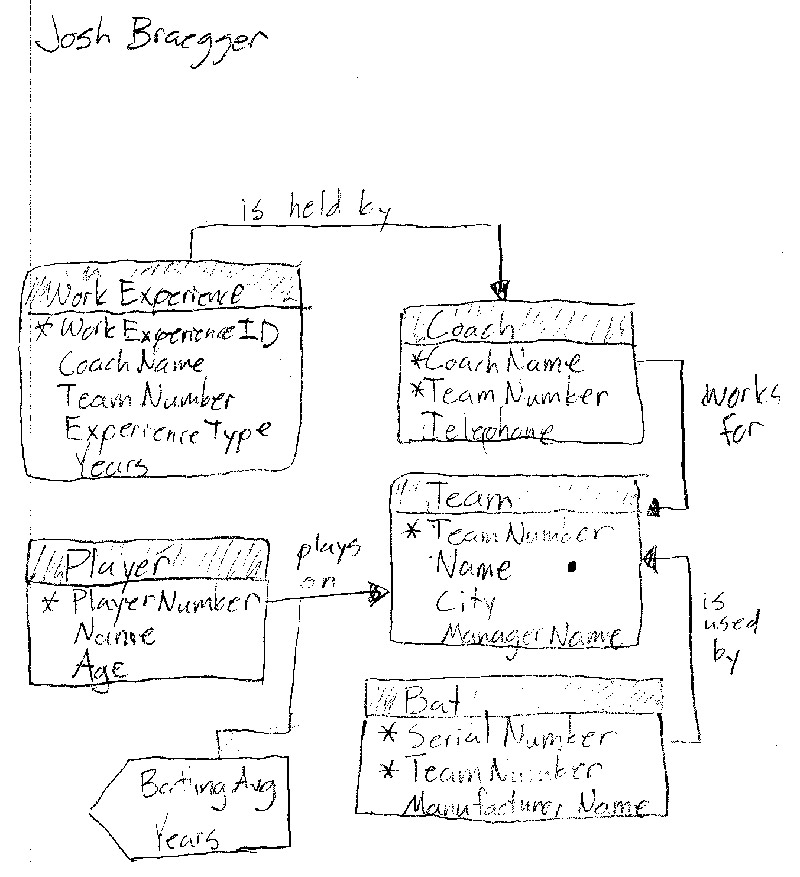 Josh Braegger
is held by
Work Experience
* WorkExperienceID
CoachName
TeamNumber
ExperienceType
Years
Coach
*CoachName
*TeamNumber
Telephone
works
for
Team
* TeamNumber
Name
City
ManagerName
plays
on
Player
* PlayerNumber
Name
Age
is
used
by
Bat
* Serial Number
* TeamNumber
Manufacturer Name
BattingAvg
Years